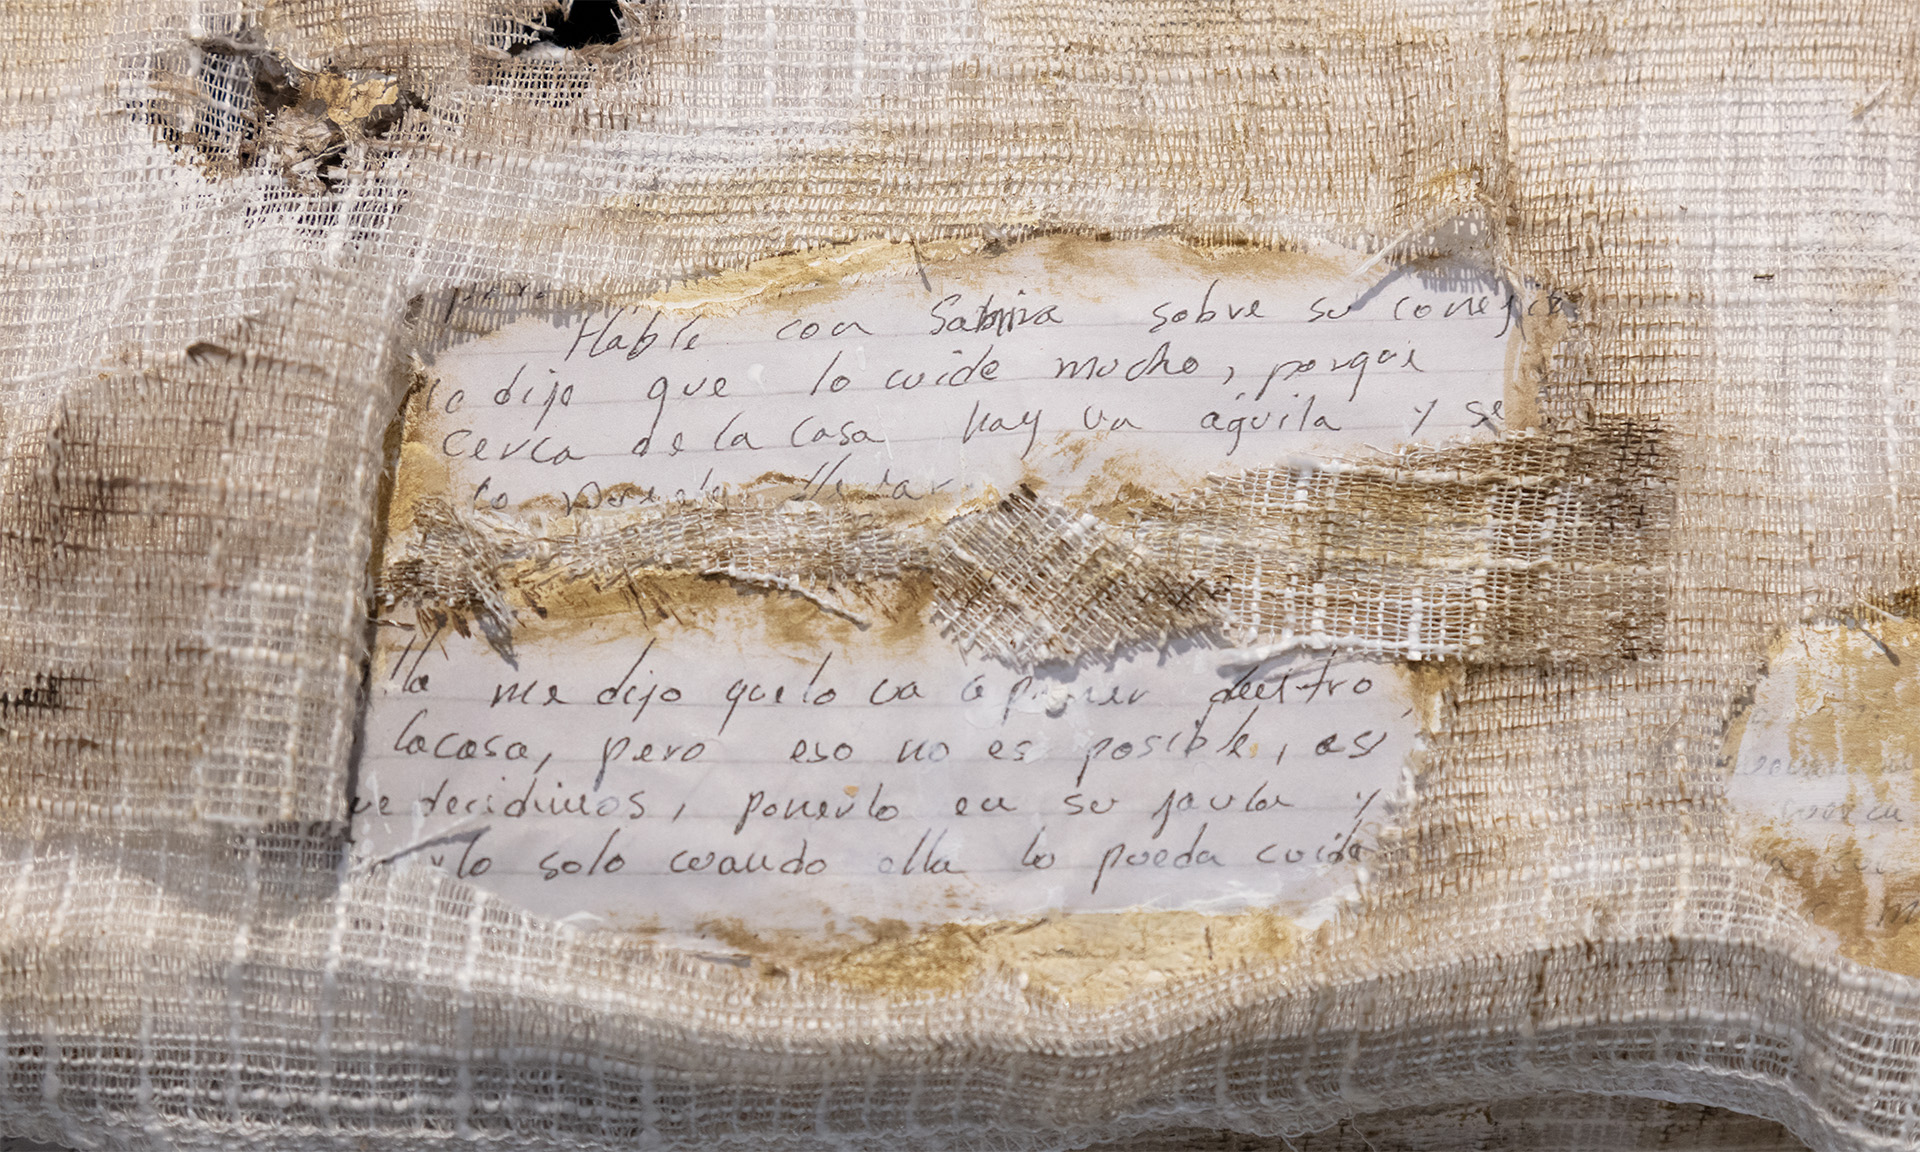 Hablé con Sabrina sobre su conejito
le dije que lo cuide mucho, porque
cerca de la casa hay un águila y se
lo puede llevar
lla me dijo que lo va a poner dentro
la casa, pero eso no es posible, así
ue decidimos, ponerlo en su jaula y
lo solo cuando ella lo pueda cuida